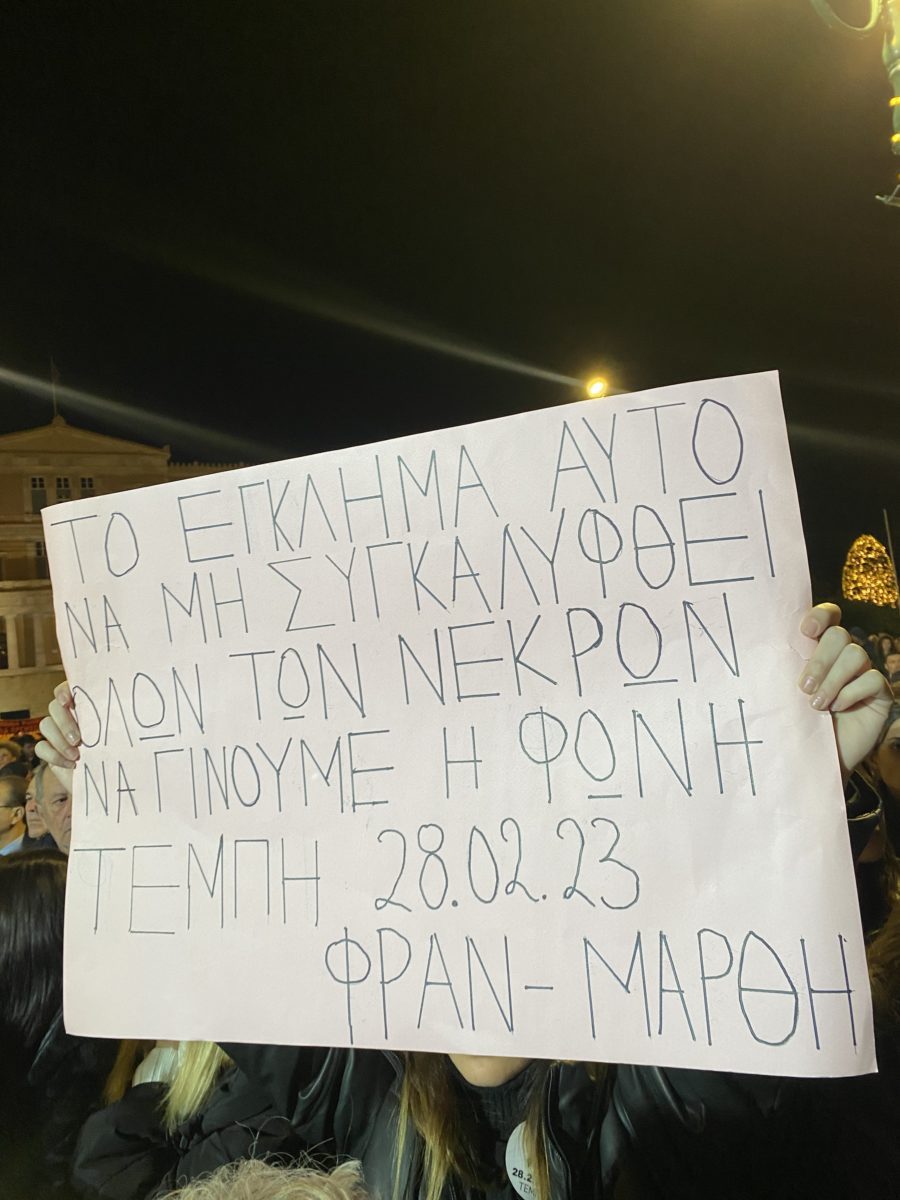 ΤΟ ΕΓΚΛΗΜΑ ΑΥΤΟ
ΝΑ ΜΗ ΣΥΓΚΑΛΥΦΘΕΙ
ΟΛΩΝ ΤΩΝ ΝΕΚΡΩΝ
ΝΑ ΓΙΝΟΥΜΕ Η ΦΩΝΗ
ΤΕΜΠΗ 28.02.23
ΦΡΑΝ - ΜΑΡΘΗ
28.2
ΤΕΜ